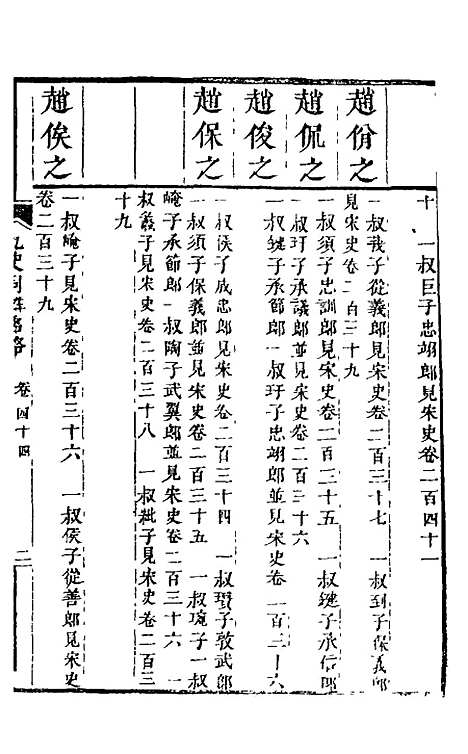 十　一叔巨子忠翊郎見宋史卷二百四十一
趙佾之
一叔我子從義郎見宋史卷二百三十七　一叔到子保義郎
見宋史卷二百三十九
趙侃之
一叔須子忠訓郎見宋史卷二百三十五　一叔鍵子承信郎
一叔玗子承議郎見宋史卷二百三十六
趙俊之
一叔鍵子承節郎一叔玗子忠翊郎並見宋史卷二百三十六
趙保之
一叔侯子成忠郎見宋史卷二百三十四　一叔瑻子敦武郎
一叔須子保義郎並見宋史卷二百三十五　一叔琬子一叔
崦子承節郎一叔陶子武翼郎並見宋史卷二百三十六　一
叔羲子見宋史卷二百三十八　一叔紕子見宋史卷二百三
十九
趙俟之
一叔崦子見宋史卷二百三十六　一叔侯子從善郎見宋史
卷二百三十九
九史同姓名略　卷四十四　二